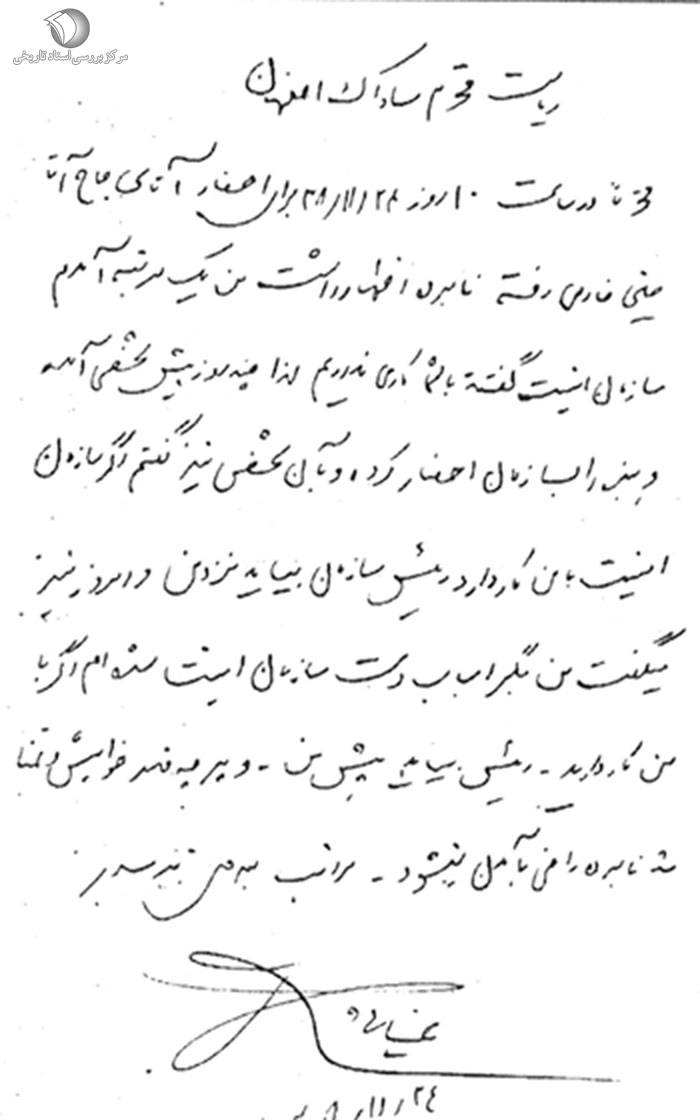 مرکز بررسی اسناد تاریخی
ریاست محترم ساواک اصفهان
محترماً در ساعت ۱۰ روز ۲۴ /۱۱/ ۳۸ برای احضار آقای حاج آقا
رفته نامبرده اظهار داشت من یک مرتبه آمدم
سازمان امنیت گفتند با شما کاری نداریم لذا چند روز پیش شخصی آمده
و بنده را بسازمان احضار کرده و بآن شخص نیز گفتم اگر سازمان
امنیت با من کار دارد رئیس سازمان بیاید نزد من و امروز نیز
میگفت من مگر اسباب دست سازمان امنیت شده ام اگر با
من کار دارید - رئیس بیاید پیش من - و هر چه قدر خواهش و تمنا
شد نامبرده راضی بآمدن نمیشود - مراتب بعرض میرسد
۲۴ /۱۱/